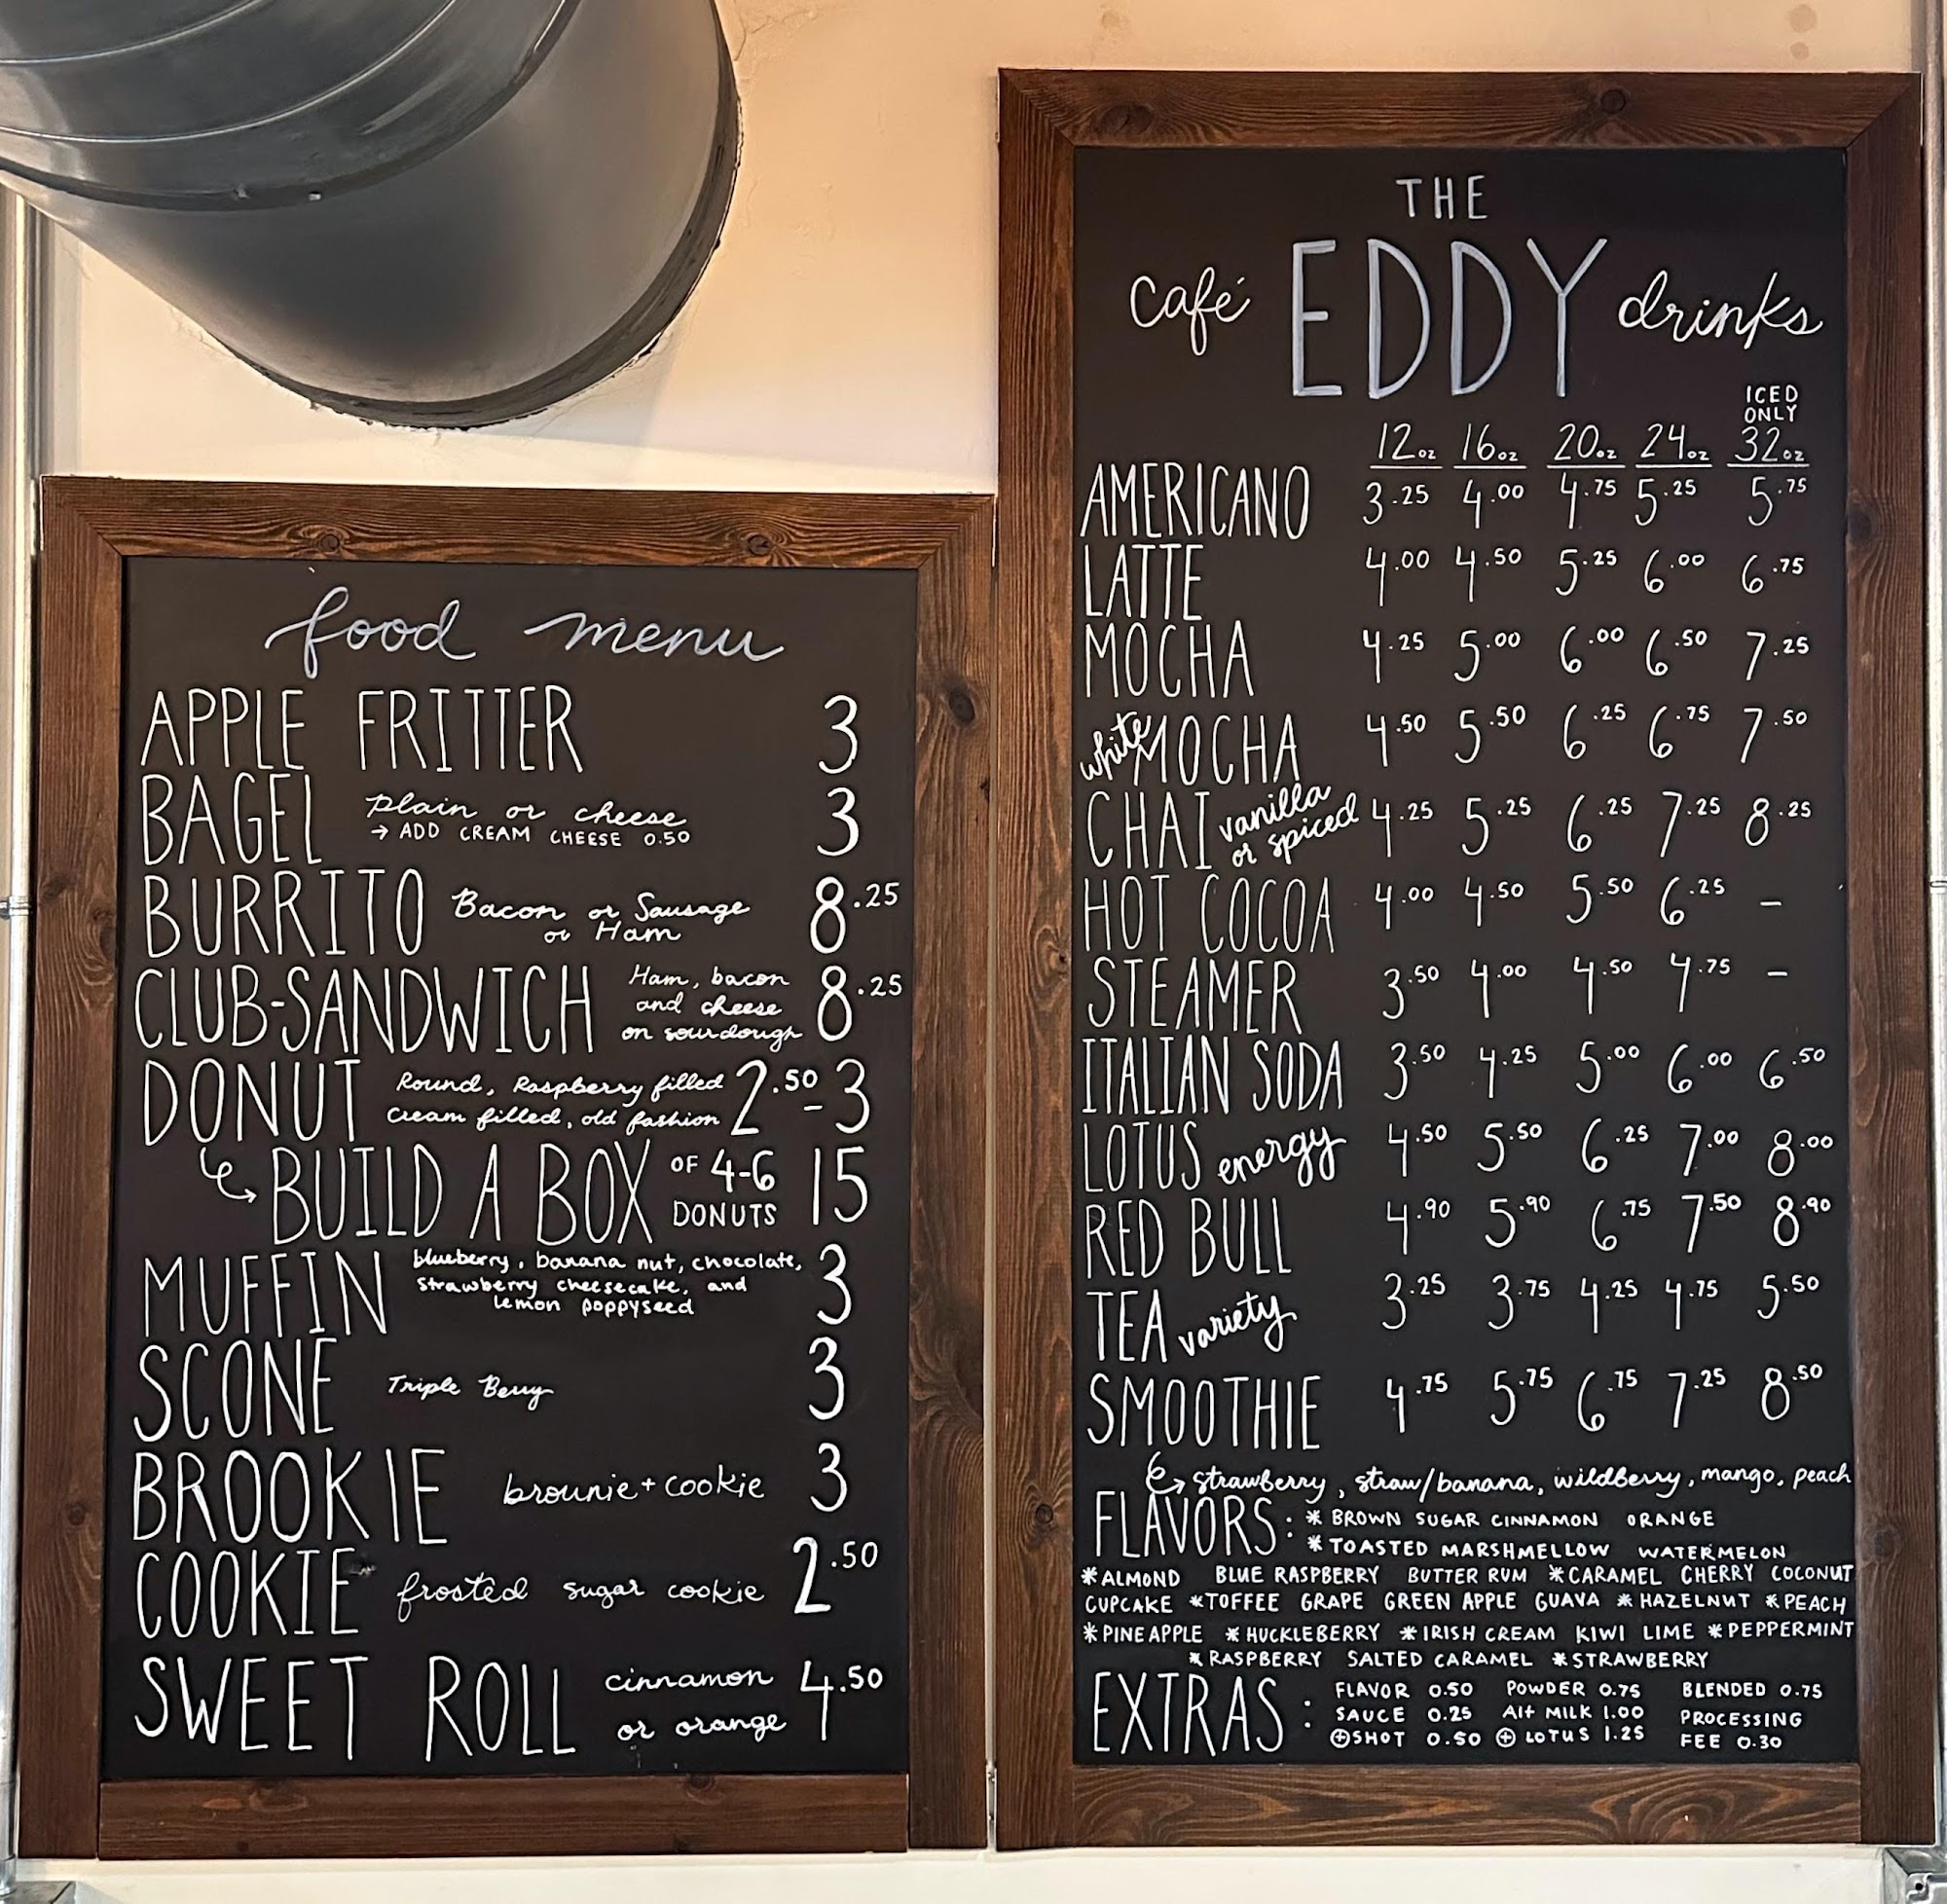 food menu
APPLE FRITTER 3
BAGEL plain or cheese 3
→ ADD CREAM CHEESE 0.50
BURRITO Bacon or Sausage 8.25
or Ham
CLUB-SANDWICH Ham, bacon 8.25
and cheese
on sourdough
DONUT Round, Raspberry filled 2.50-3
cream filled, old fashion
BUILD A BOX OF 4-6 15
DONUTS
MUFFIN blueberry, banana nut, chocolate, 3
strawberry cheesecake, and
lemon poppyseed
SCONE Triple Berry 3
BROOKIE brownie + cookie 3
COOKIE frosted sugar cookie 2.50
SWEET ROLL cinnamon 4.50
or orange
THE
café EDDY drinks
ICED
ONLY
12oz 16oz 20oz 24oz 32oz
AMERICANO 3.25 4.00 4.75 5.25 5.75
LATTE 4.00 4.50 5.25 6.00 6.75
MOCHA 4.25 5.00 6.00 6.50 7.25
white MOCHA 4.50 5.50 6.25 6.75 7.50
CHAI vanilla 4.25 5.25 6.25 7.25 8.25
or spiced
HOT COCOA 4.00 4.50 5.50 6.25 –
STEAMER 3.50 4.00 4.50 4.75 –
ITALIAN SODA 3.50 4.25 5.00 6.00 6.50
LOTUS energy 4.50 5.50 6.25 7.00 8.00
RED BULL 4.90 5.90 6.75 7.50 8.90
TEA variety 3.25 3.75 4.25 4.75 5.50
SMOOTHIE 4.75 5.75 6.75 7.25 8.50
strawberry, straw/banana, wildberry, mango, peach
FLAVORS: * BROWN SUGAR CINNAMON ORANGE
* TOASTED MARSHMELLOW WATERMELON
* ALMOND BLUE RASPBERRY BUTTER RUM * CARAMEL CHERRY COCONUT
CUPCAKE * TOFFEE GRAPE GREEN APPLE GUAVA * HAZELNUT * PEACH
* PINEAPPLE * HUCKLEBERRY * IRISH CREAM KIWI LIME * PEPPERMINT
* RASPBERRY SALTED CARAMEL * STRAWBERRY
EXTRAS: FLAVOR 0.50 POWDER 0.75 BLENDED 0.75
SAUCE 0.25 Alt MILK 1.00 PROCESSING
⊕SHOT 0.50 ⊕ LOTUS 1.25 FEE 0.30